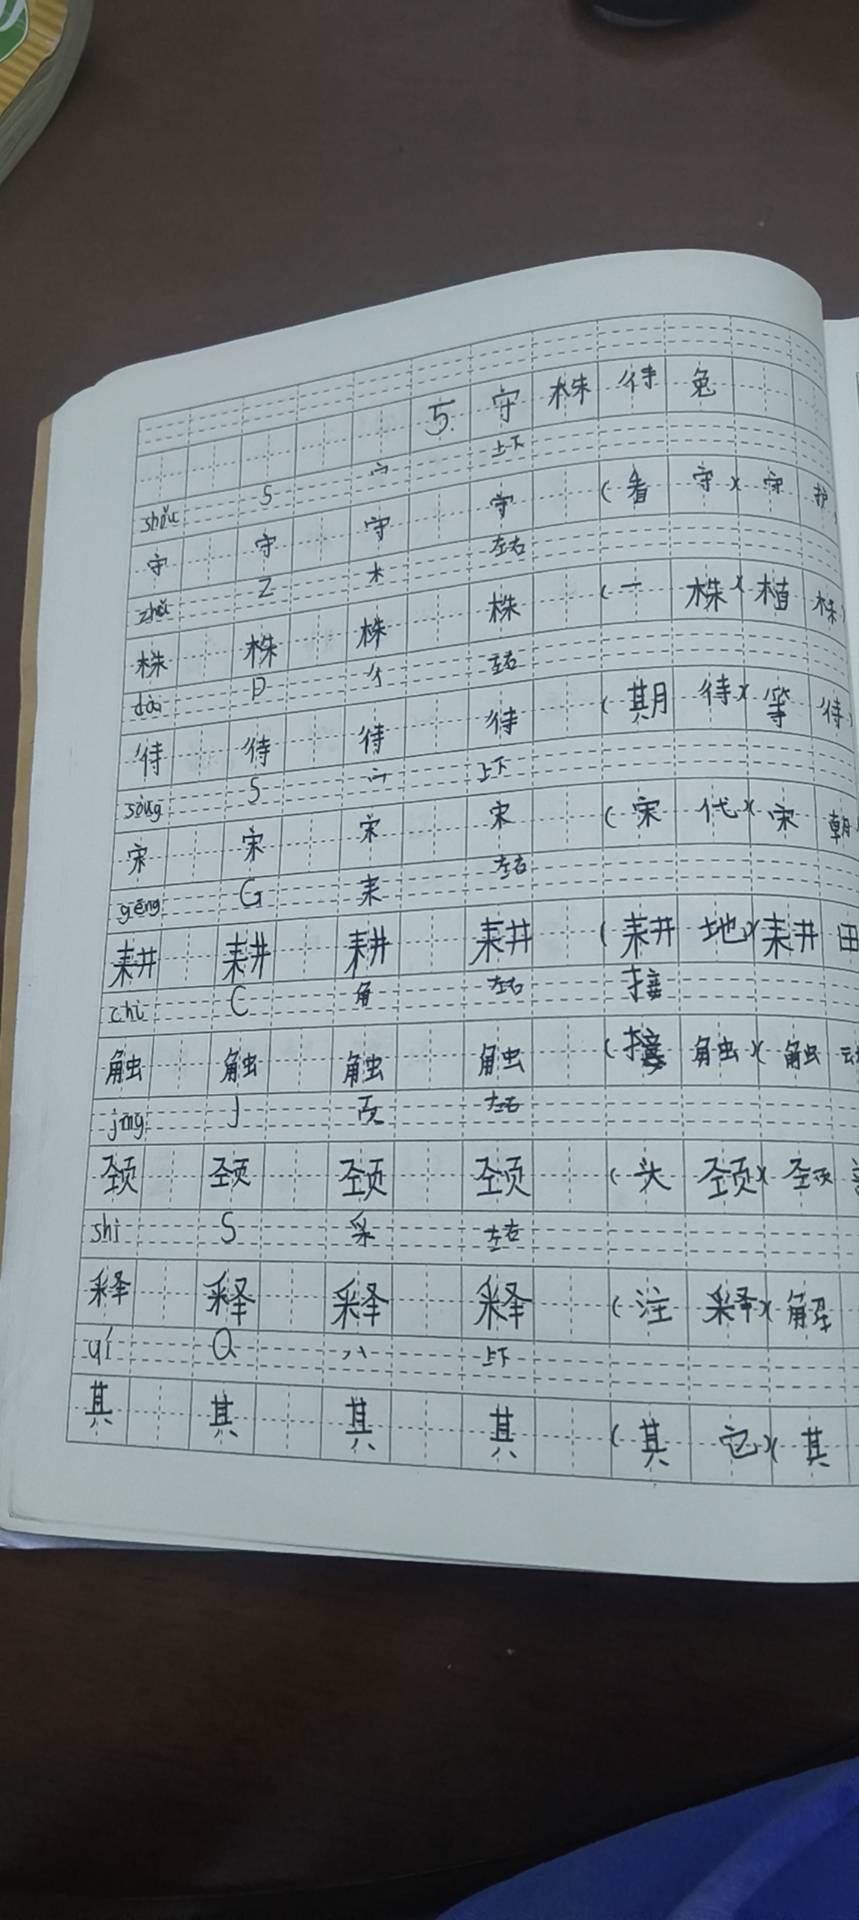 5. 守株待兔
shǒu S 宀 上下
守 守 守 守 (看守)(守护
Z 木 左右
株 株 株 株 (一株)(植株)
dài D 彳 左右
待 待 待 待 (期待)(等待)
sòng S 宀 上下
宋 宋 宋 宋 (宋代)(宋朝
gēng G 耒 左右
耕 耕 耕 耕 (耕地)(耕田
chù C 角 左右 接
触 触 触 触 (接触)(触动
jǐng J 页 左右
颈 颈 颈 颈 (头颈)(颈
shì S 釆 左右
释 释 释 释 (注释)(解
qí Q 八 上下
其 其 其 其 (其它)(其